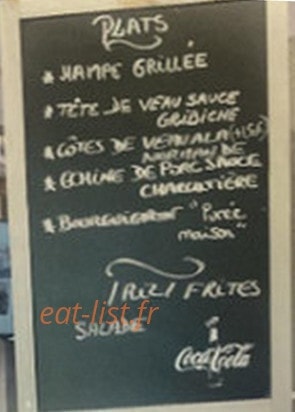 PLATS
* HAMPE GRILLÉE
* TÊTE DE VEAU SAUCE
GRIBICHE
* CÔTES DE VEAU A LA
NORMANDE
* ECHINE DE PORC SAUCE
CHARCUTIÈRE
* BOURGUIGNON "Purée
maison"
RIZ / FRITES
eat-list.fr
SALADE
Coca-Cola